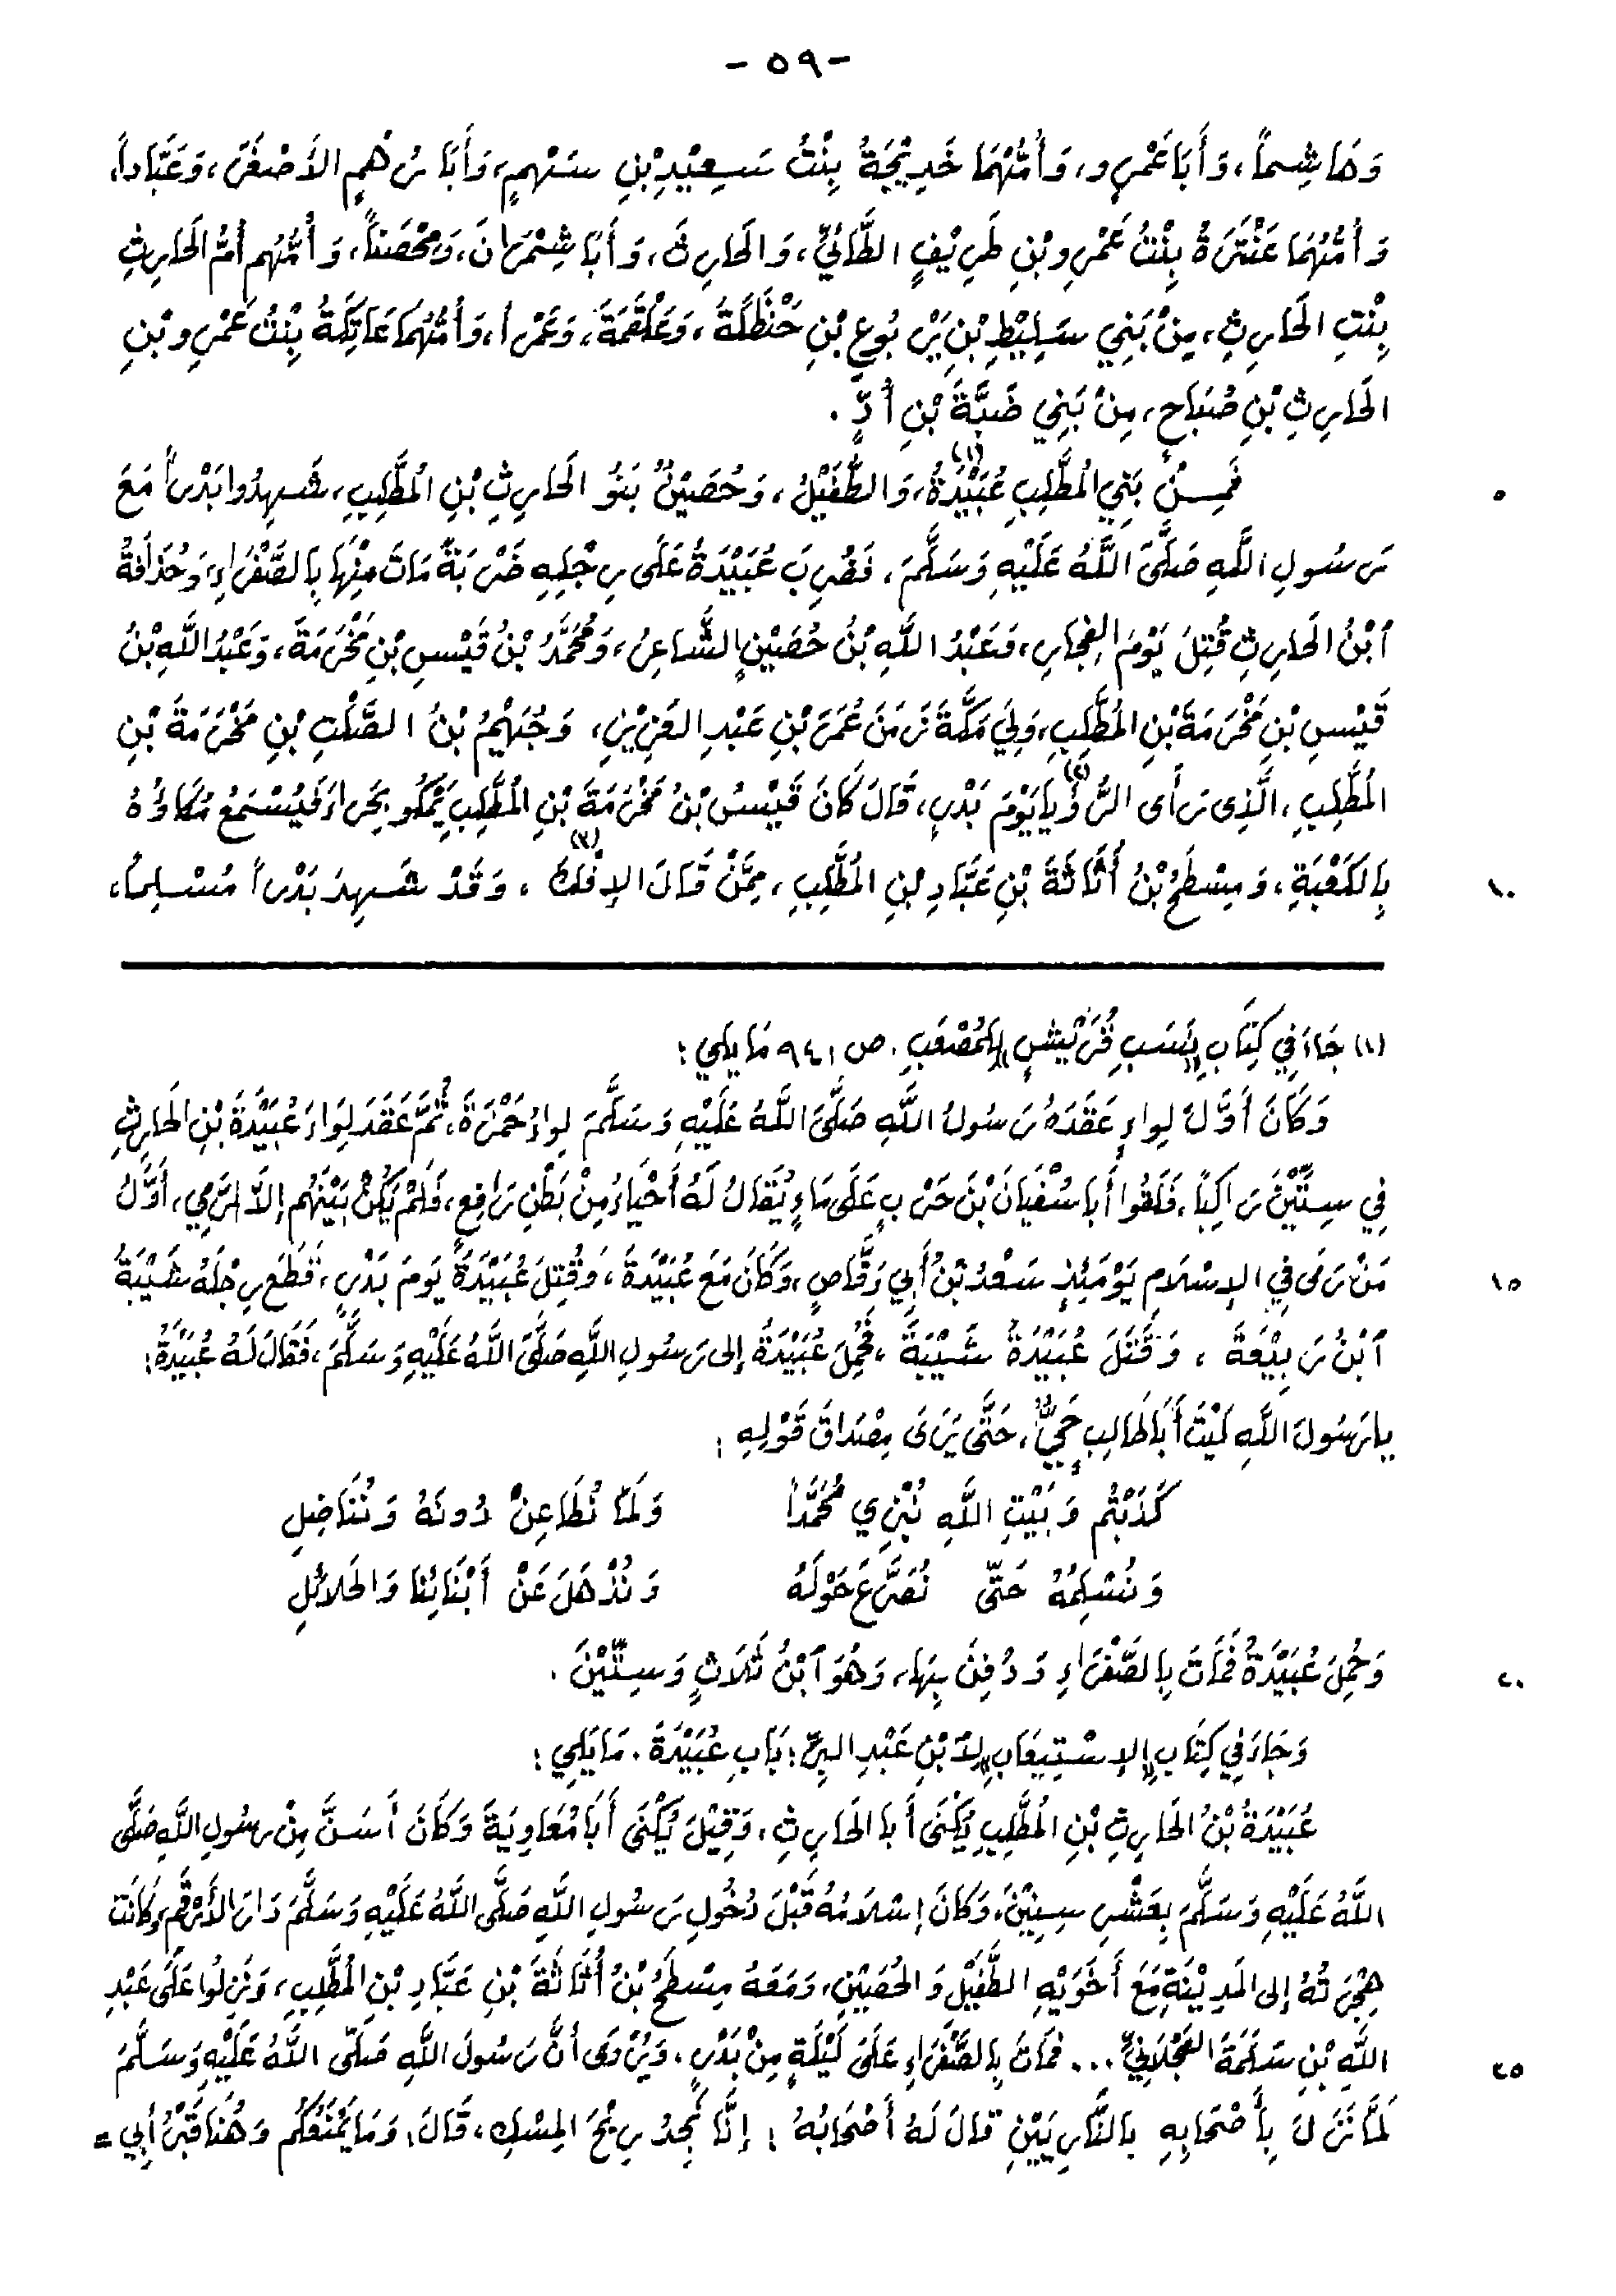 - ٥٩ -
وَهَاشِماً، وَأَبَا عَمْرٍو، وَأُمُّهُمَا خَدِيْجَةُ بِنْتُ سَعِيْدِ بْنِ سَهْمٍ، وَأَبَا رُهْمٍ الأَصْغَرَ، وَعَبَّاداً،
وَأُمُّهُمَا عَنْتَرَةُ بِنْتُ عَمْرِو بْنِ طَرِيْفٍ الطَّائِيِّ، وَالحَارِثَ، وَأَبَا شِمْرَانَ، وَمِحْصَناً، وَأُمُّهُم أُمُّ الحَارِثِ
بِنْتِ الحَارِثِ، مِنْ بَنِي سَلِيْطِ بْنِ يَرْبُوعِ بْنِ حَنْظَلَةَ، وَعَلْقَمَةَ، وَعَمْراً، وَأُمُّهُمَا عَاتِكَةُ بِنْتُ عَمْرِو بْنِ
الحَارِثِ بْنِ صُبَاحٍ، مِنْ بَنِي ضَبَّةَ بْنِ أُدٍّ.
فَمِنْ بَنِي المُطَّلِبِ عُبَيْدَةُ(١)، وَالطُّفَيْلُ، وَحُصَيْنٌ بَنُو الحَارِثِ بْنِ المُطَّلِبِ، شَهِدُوا بَدْراً مَعَ
٥
رَسُولِ اللَّهِ صَلَّى اللَّهُ عَلَيْهِ وَسَلَّمَ، فَضُرِبَ عُبَيْدَةُ عَلَى رِجْلِهِ ضَرْبَةً مَاتَ مِنْهَا بِالصَّفْرَاءِ، وَحُذَافَةُ
ٱبْنُ الحَارِثِ قُتِلَ يَوْمَ الفِجَارِ، وَعَبْدُ اللَّهِ بْنُ حُصَيْنٍ الشَّاعِرُ، وَمُحَمَّدُ بْنُ قَيْسِ بْنِ مَخْرَمَةَ، وَعَبْدُ اللَّهِ بْنُ
قَيْسِ بْنِ مَخْرَمَةَ بْنِ المُطَّلِبِ، وَلِيَ مَكَّةَ زَمَنَ عُمَرَ بْنِ عَبْدِ العَزِيزِ، وَجُهَيْمُ بْنُ الصَّلْتِ بْنِ مَخْرَمَةَ بْنِ
المُطَّلِبِ، الَّذِي رَأَى الرُّؤْيَا(٢) يَوْمَ بَدْرٍ، قَالَ كَانَ قَيْسُ بْنُ مَخْرَمَةَ بْنِ المُطَّلِبِ يَمْكُو بِحِرَاءَ فَيُسْمَعُ مُكَاؤُهُ
بِالكَعْبَةِ، وَمِسْطَحُ بْنُ أُثَاثَةَ بْنِ عَبَّادِ بْنِ المُطَّلِبِ، مِمَّنْ قَالَ الإِفْكَ(٣)، وَقَدْ شَهِدَ بَدْراً مُسْلِماً،
١٠
(١) جَاءَ فِي كِتَابِ "نَسَبِ قُرَيْشٍ" لِلمُصْعَبِ. ص ٩٤١ مَا يلي:
وَكَانَ أَوَّلَ لِوَاءٍ عَقَدَهُ رَسُولُ اللَّهِ صَلَّى اللَّهُ عَلَيْهِ وَسَلَّمَ لِواءُ حَمْزَةَ، ثُمَّ عَقَدَ لِوَاءَ عُبَيْدَةَ بْنِ الحَارِثِ
فِي سِتِّيْنَ رَاكِبًا، فَلَقُوا أَبَا سُفْيَانَ بْنَ حَرْبٍ عَلَى مَاءٍ يُقَالُ لَهُ أَحْيَاءُ مِنْ بَطْنِ رَافِعٍ، فَلَمْ يَكُنْ بَيْنَهُم إلاَّ الرَّمي، أَوَّلُ
مَنْ رَمَى فِي الإِسْلَامِ يَوْمَئِذٍ سَعْدُ بْنُ أَبِي وَقَّاصٍ، وَكَانَ مَعَ عُبَيْدَةَ، وَقُتِلَ عُبَيْدَةُ يَومَ بَدْرٍ، قَطَعَ رِجْلَهُ شَيْبَةُ
١٥
ٱبْنُ رَبِيْعَةَ، وَقَتَلَ عُبَيْدَةُ شَيْبَةَ، فَحُمِلَ عُبَيْدَةُ إلى رَسُولِ اللَّهِ صَلَّى اللَّهُ عَلَيْهِ وَسَلَّمَ، فَقَالَ لَهُ عُبَيْدَةُ:
يا رَسُولَ اللَّهِ لَيْتَ أَبَا طَالِبٍ حَيٌّ، حَتَّى يَرَى مِصْدَاقَ قَوْلِهِ:
كَذَبْتُم وَبَيْتِ اللَّهِ نُبْزِي مُحَمَّداً وَلَمَّا نُطَاعِنْ دُونَهُ وَنُنَاضِلِ
وَنُسْلِمُهُ حَتّى نُصَرَّعَ حَوْلَهُ وَنُذْهَلَ عَنْ أَبْنَائِنَا وَالحَلائِلِ
وَحُمِلَ عُبَيْدَةُ فَمَاتَ بِالصَّفْرَاءِ وَدُفِنَ بِهَا، وَهُوَ ٱبْنُ ثَلَاثٍ وَسِتِّيْنَ.
٢٠
وَجَاءَ فِي كِتَابِ "الإِسْتِيعَابِ" لِابْنِ عَبْدِ البِرِّ: بَابِ عُبَيْدَةَ. مَا يَلِي:
عُبَيْدَةُ بْنُ الحَارِثِ بْنِ المُطَّلِبِ يُكْنَى أَبا الحَارِثِ، وَقِيْلَ يُكْنَى أَبَا مُعَاوِيَةَ وَكَانَ أَسَنَّ مِنْ رسُولِ اللَّهِ صَلَّى
اللَّهُ عَلَيْهِ وَسَلَّمَ بِعَشْرِ سِنِيْنَ، وَكَانَ إِسْلَامُهُ قَبْلَ دُخُولِ رَسُولِ اللَّهِ صَلَّى اللَّهُ عَلَيْهِ وَسَلَّمَ دَارَ الأَرْقَمِ، وَكَانَت
هِجْرَتُهُ إلى المَدِيْنَةِ مَعَ أَخَوَيْهِ الطُّفَيْلِ وَالحُصَيْنِ، وَمَعَهُ مِسْطَحُ بْنُ أُثَاثَةَ بْنِ عَبَّادِ بْنِ المُطَّلِبِ، وَنَزَلُوا عَلَى عَبْدِ
اللَّهِ بْنِ سَلَمَةَ العَجْلَانِيِّ... فَمَاتَ بِالصَّفْرَاءِ عَلَى لَيْلَةٍ مِنْ بَدْرٍ، وَيُرْوَى أَنَّ رَسُولَ اللَّهِ صَلّى اللَّهُ عَلَيْهِ وَسَلَّمَ
٢٥
لَمَّا نَزَلَ بِأَصْحَابِهِ بالنَّازِيَيْنِ قالَ لَهُ أَصْحَابُهُ: إِنَّا نَجِدُ رِيْحَ المِسْكِ، قَالَ: وَمَا يَمْنَعُكُم وَهُنَا قَبْرُ أَبِي =